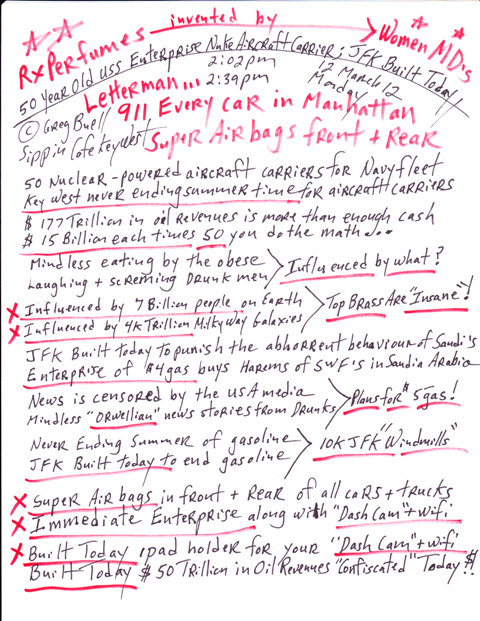 Rx Perfumes invented by Women MD's
50 Year Old USS Enterprise Nuke Aircraft Carrier; JFK Built Today!
2:02pm
2:39pm
12 March 12
Monday
Letterman...
© Greg Buell
Sippin Cafe Key West
911 Every car in Manhattan
Super Air bags front + Rear
50 Nuclear-powered aircraft carriers for Navy fleet
Key West never ending summer time for aircraft carriers
$177 Trillion in oil Revenues is more than enough cash
$15 Billion each times 50 you do the math...
Mindless eating by the obese
Laughing + screming Drunk men
Influenced by what?
Influenced by 7 Billion people on Earth
Influenced by 4k Trillion Milky Way Galaxies
Top Brass Are "Insane"!
JFK Built Today to punish the abhorrent behaviour of Saudi's
Enterprise of $4 gas buys Harems of SWF's in Saudia Arabia
News is censored by the USA media
Mindless "Orwellian" news stories from Drunks
Plans for $5 gas!
Never Ending Summer of gasoline
JFK Built today to end gasoline
10K JFK "Windmills"
Super Air bags in front + Rear of all cars + trucks
Immediate Enterprise along with "Dash Cam" + wifi
Built Today ipad holder for your "Dash Cam" + wifi
Built Today $50 Trillion in Oil Revenues "Confiscated" Today $!!